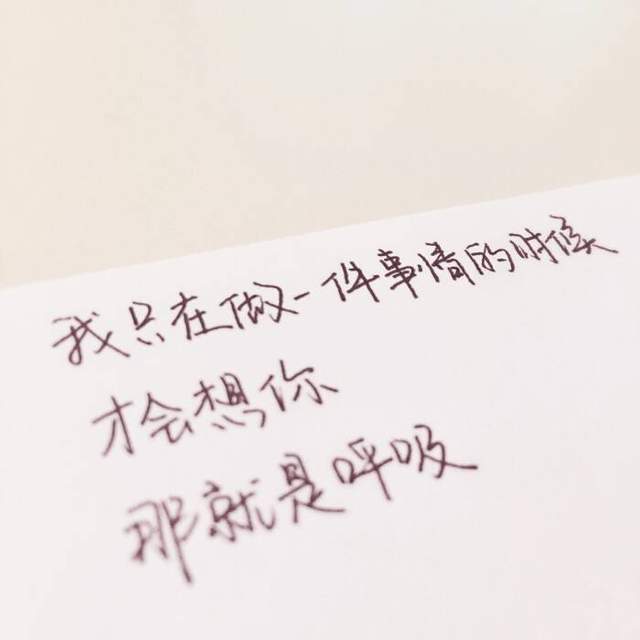 我只在做一件事情的时候
才会想你
那就是呼吸